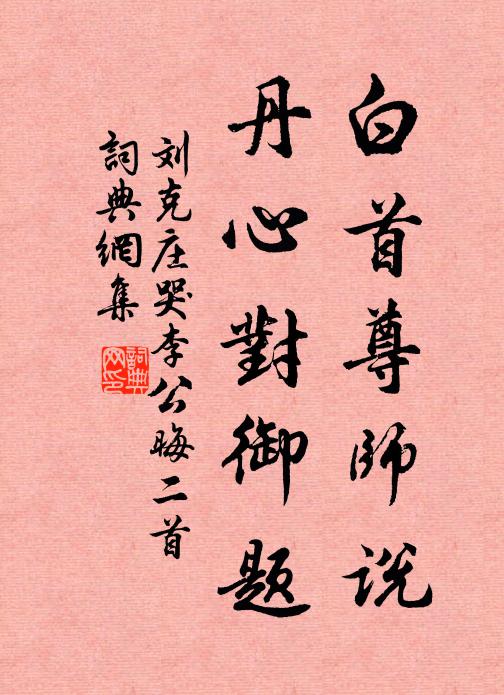 白首尊师说
丹心對御題
刘克庄哭李公晦二首
詞典網集
詞典網印